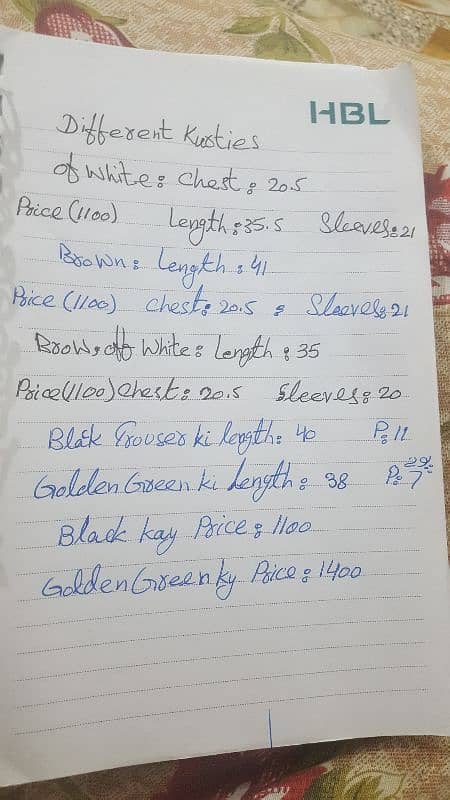 HBL
Different Kurties
of White: Chest: 20.5
Price (1100) Length: 35.5 Sleeves: 21
Brown: Length: 41
Price (1100) Chest: 20.5 : Sleeves: 21
Brow, off White: Length: 35
Price (1100) Chest: 20.5 Sleeves: 20
Black Trouser ki length: 40 P: 11
Golden Green ki Length: 38 P: 7
Black kay Price: 1100
Golden Green ky Price: 1400